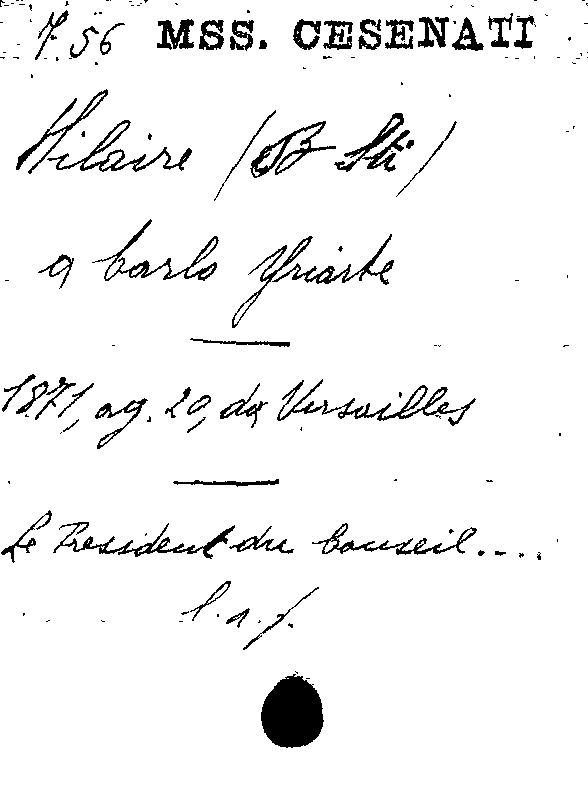 7.56 MSS. CESENATI
Hilaire (B Sti)
a Carlo Yriarte
1871, ag. 20, da Versailles
Le President du Conseil....
l. a. f.